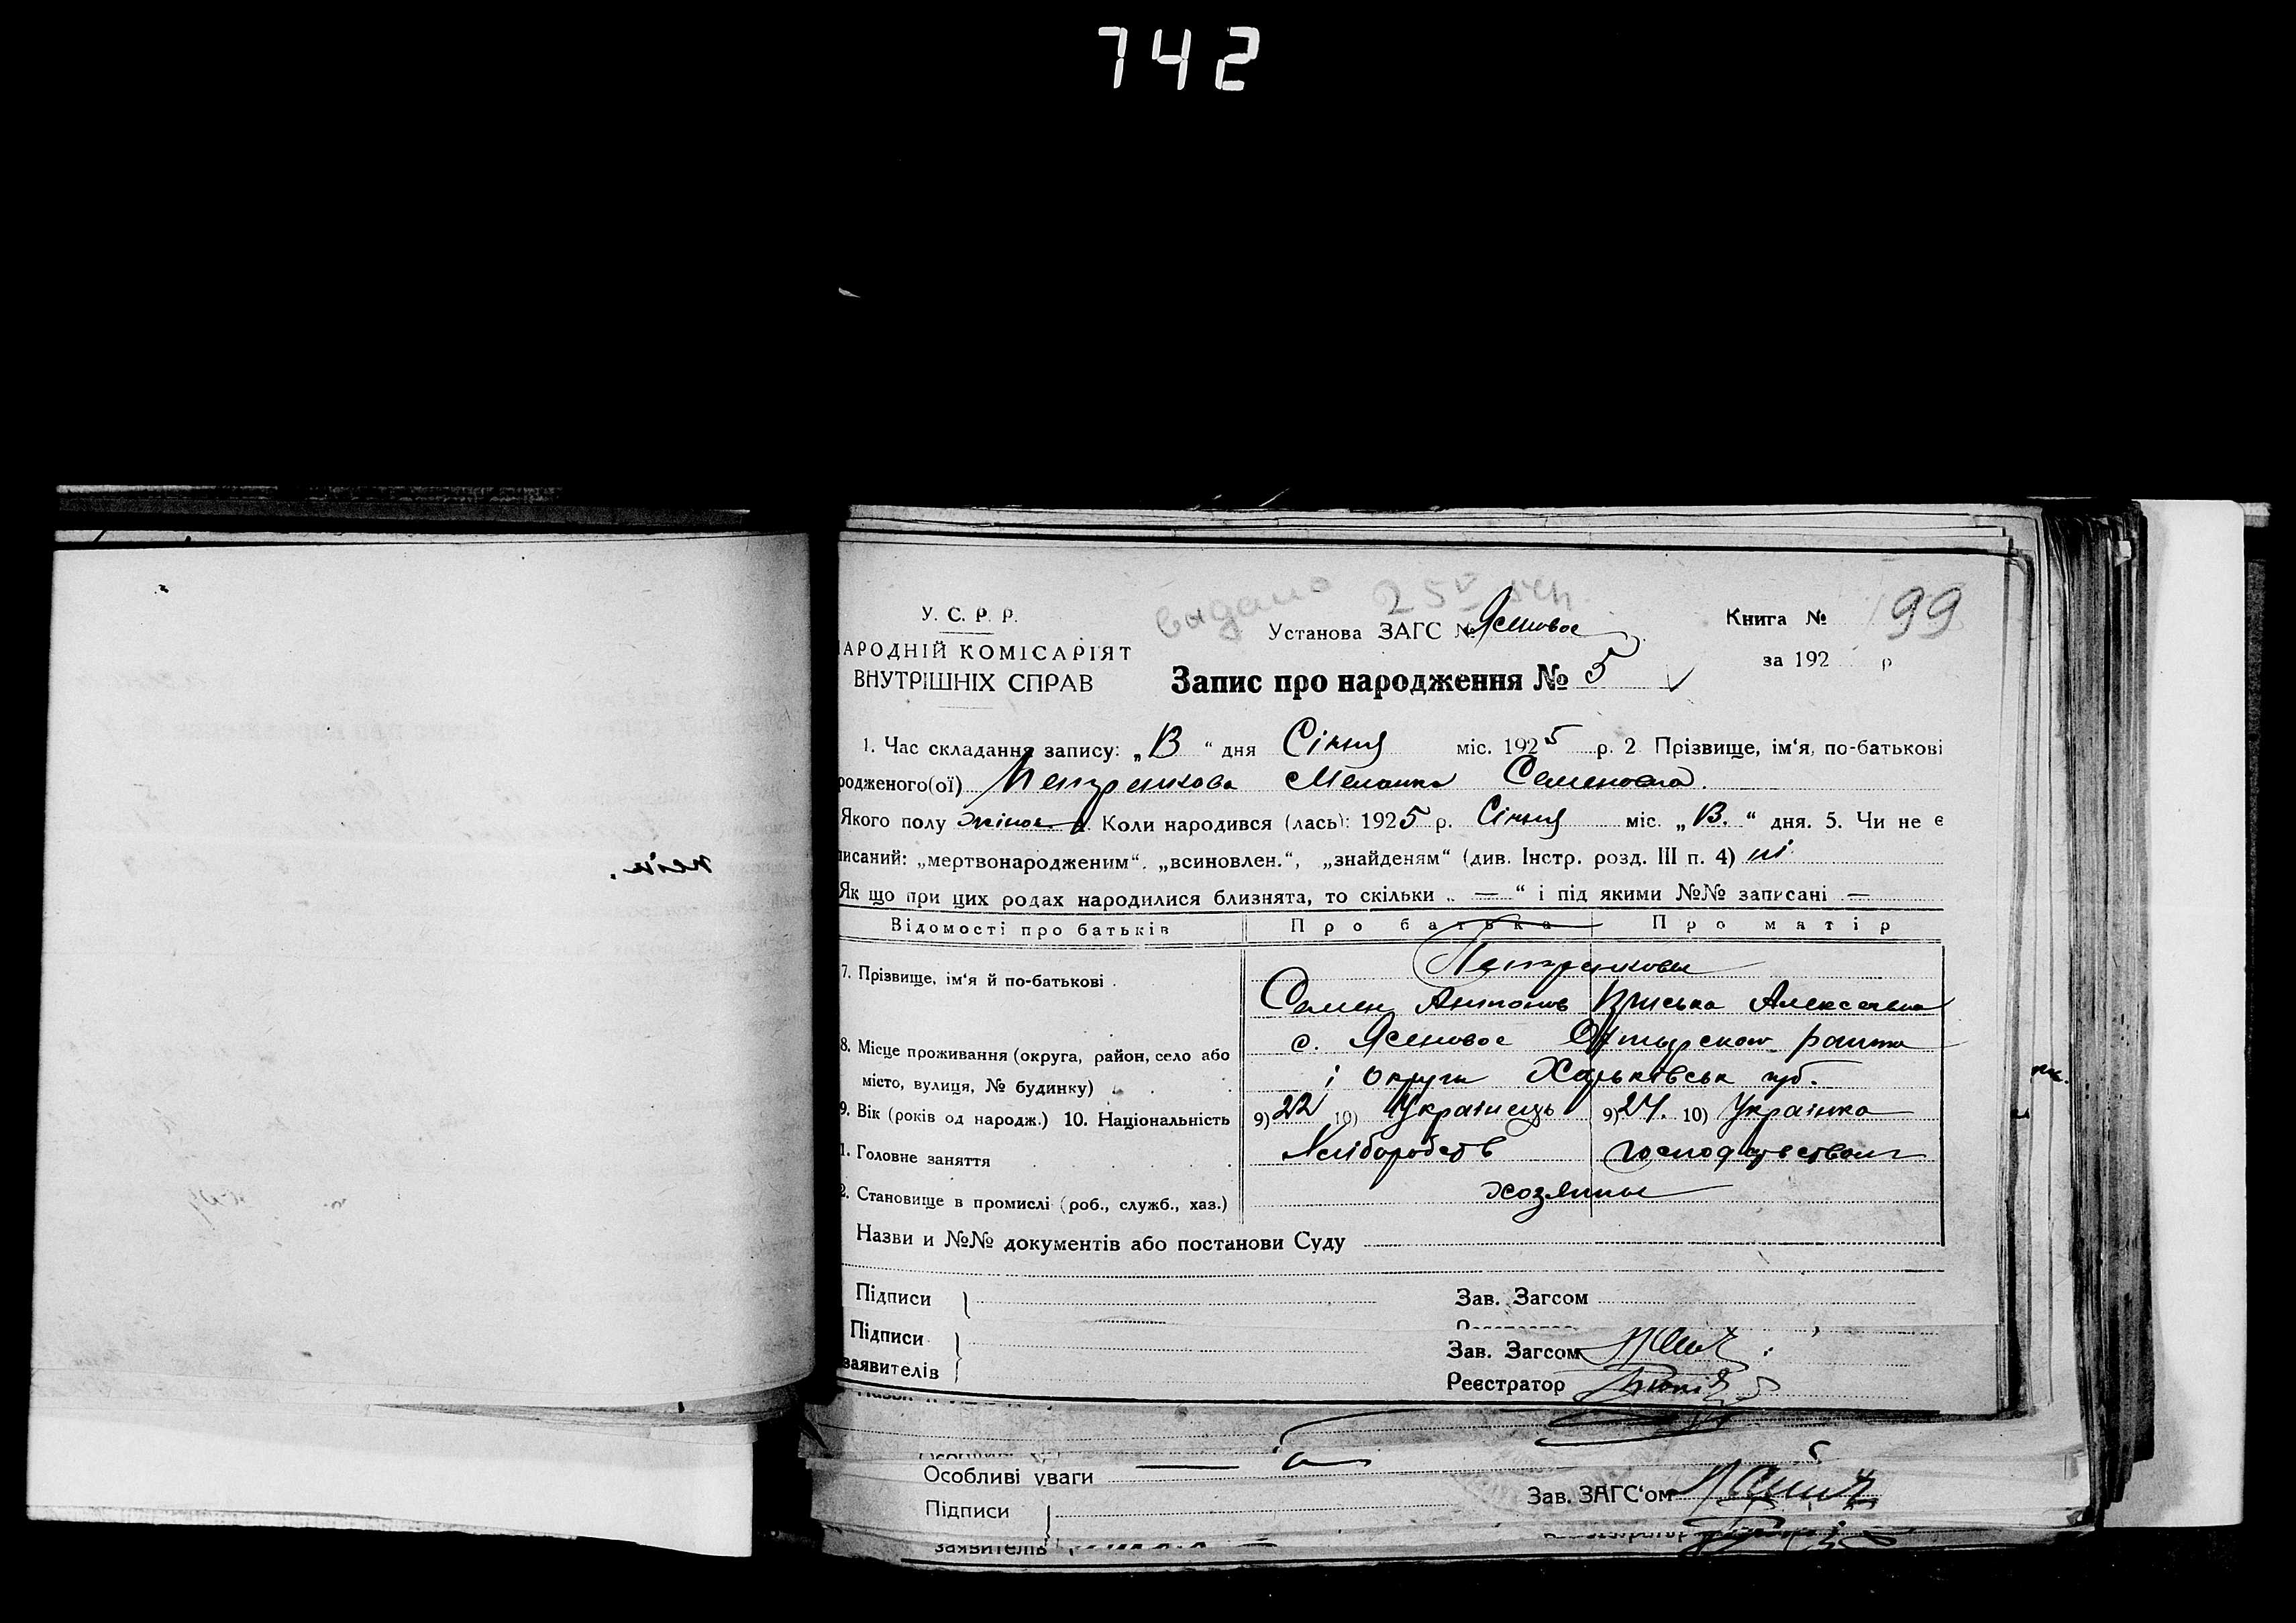 742
видано 25 V
У. С. Р. Р.
Установа ЗАГС № Ясеновое
Книга №
199
АРОДНІЙ КОМІСАРІЯТ
за 192 р
ВНУТРІШНІХ СПРАВ
Запис про народження № 5
1. Час складання запису: „13“ дня Січня міс. 1925 р. 2 Прізвище, ім‘я, по-батькові
родженого(ої) Петренкова Меланка Семеновна.
Якого полу жіноч. Коли народився (лась): 1925 р. Січня міс. „13.“ дня. 5. Чи не є
писаний: „мертвонародженим“. „всиновлен.“, „знайденям“ (див. Інстр. розд. III п. 4) ні
Як що при цих родах народилися близнята, то скільки „ — “ і під якими №№ записані —
Відомості про батьків Про батька Про матір
7. Прізвище, ім‘я й по-батькові
Петренкови
Семен Антонов Пріська Алексевна
8. Місце проживання (округа, район, село або
місто, вулиця, № будинку)
с. Ясеновое
і округи Харьківськ губ.
9. Вік (років од народж.) 10. Національність 9) 22 10) Українець 9) 24. 10) Українка
1. Головне заняття Хліборобств господарством
2. Становище в промислі (роб., служб., хаз.) хозяины
Назви и №№ документів або постанови Суду
Підписи
Зав. Загсом
Підписи
заявителів
Зав. Загсом
Реєстратор
Особливі уваги
Підписи
Зав. ЗАГС‘ом
заявителів